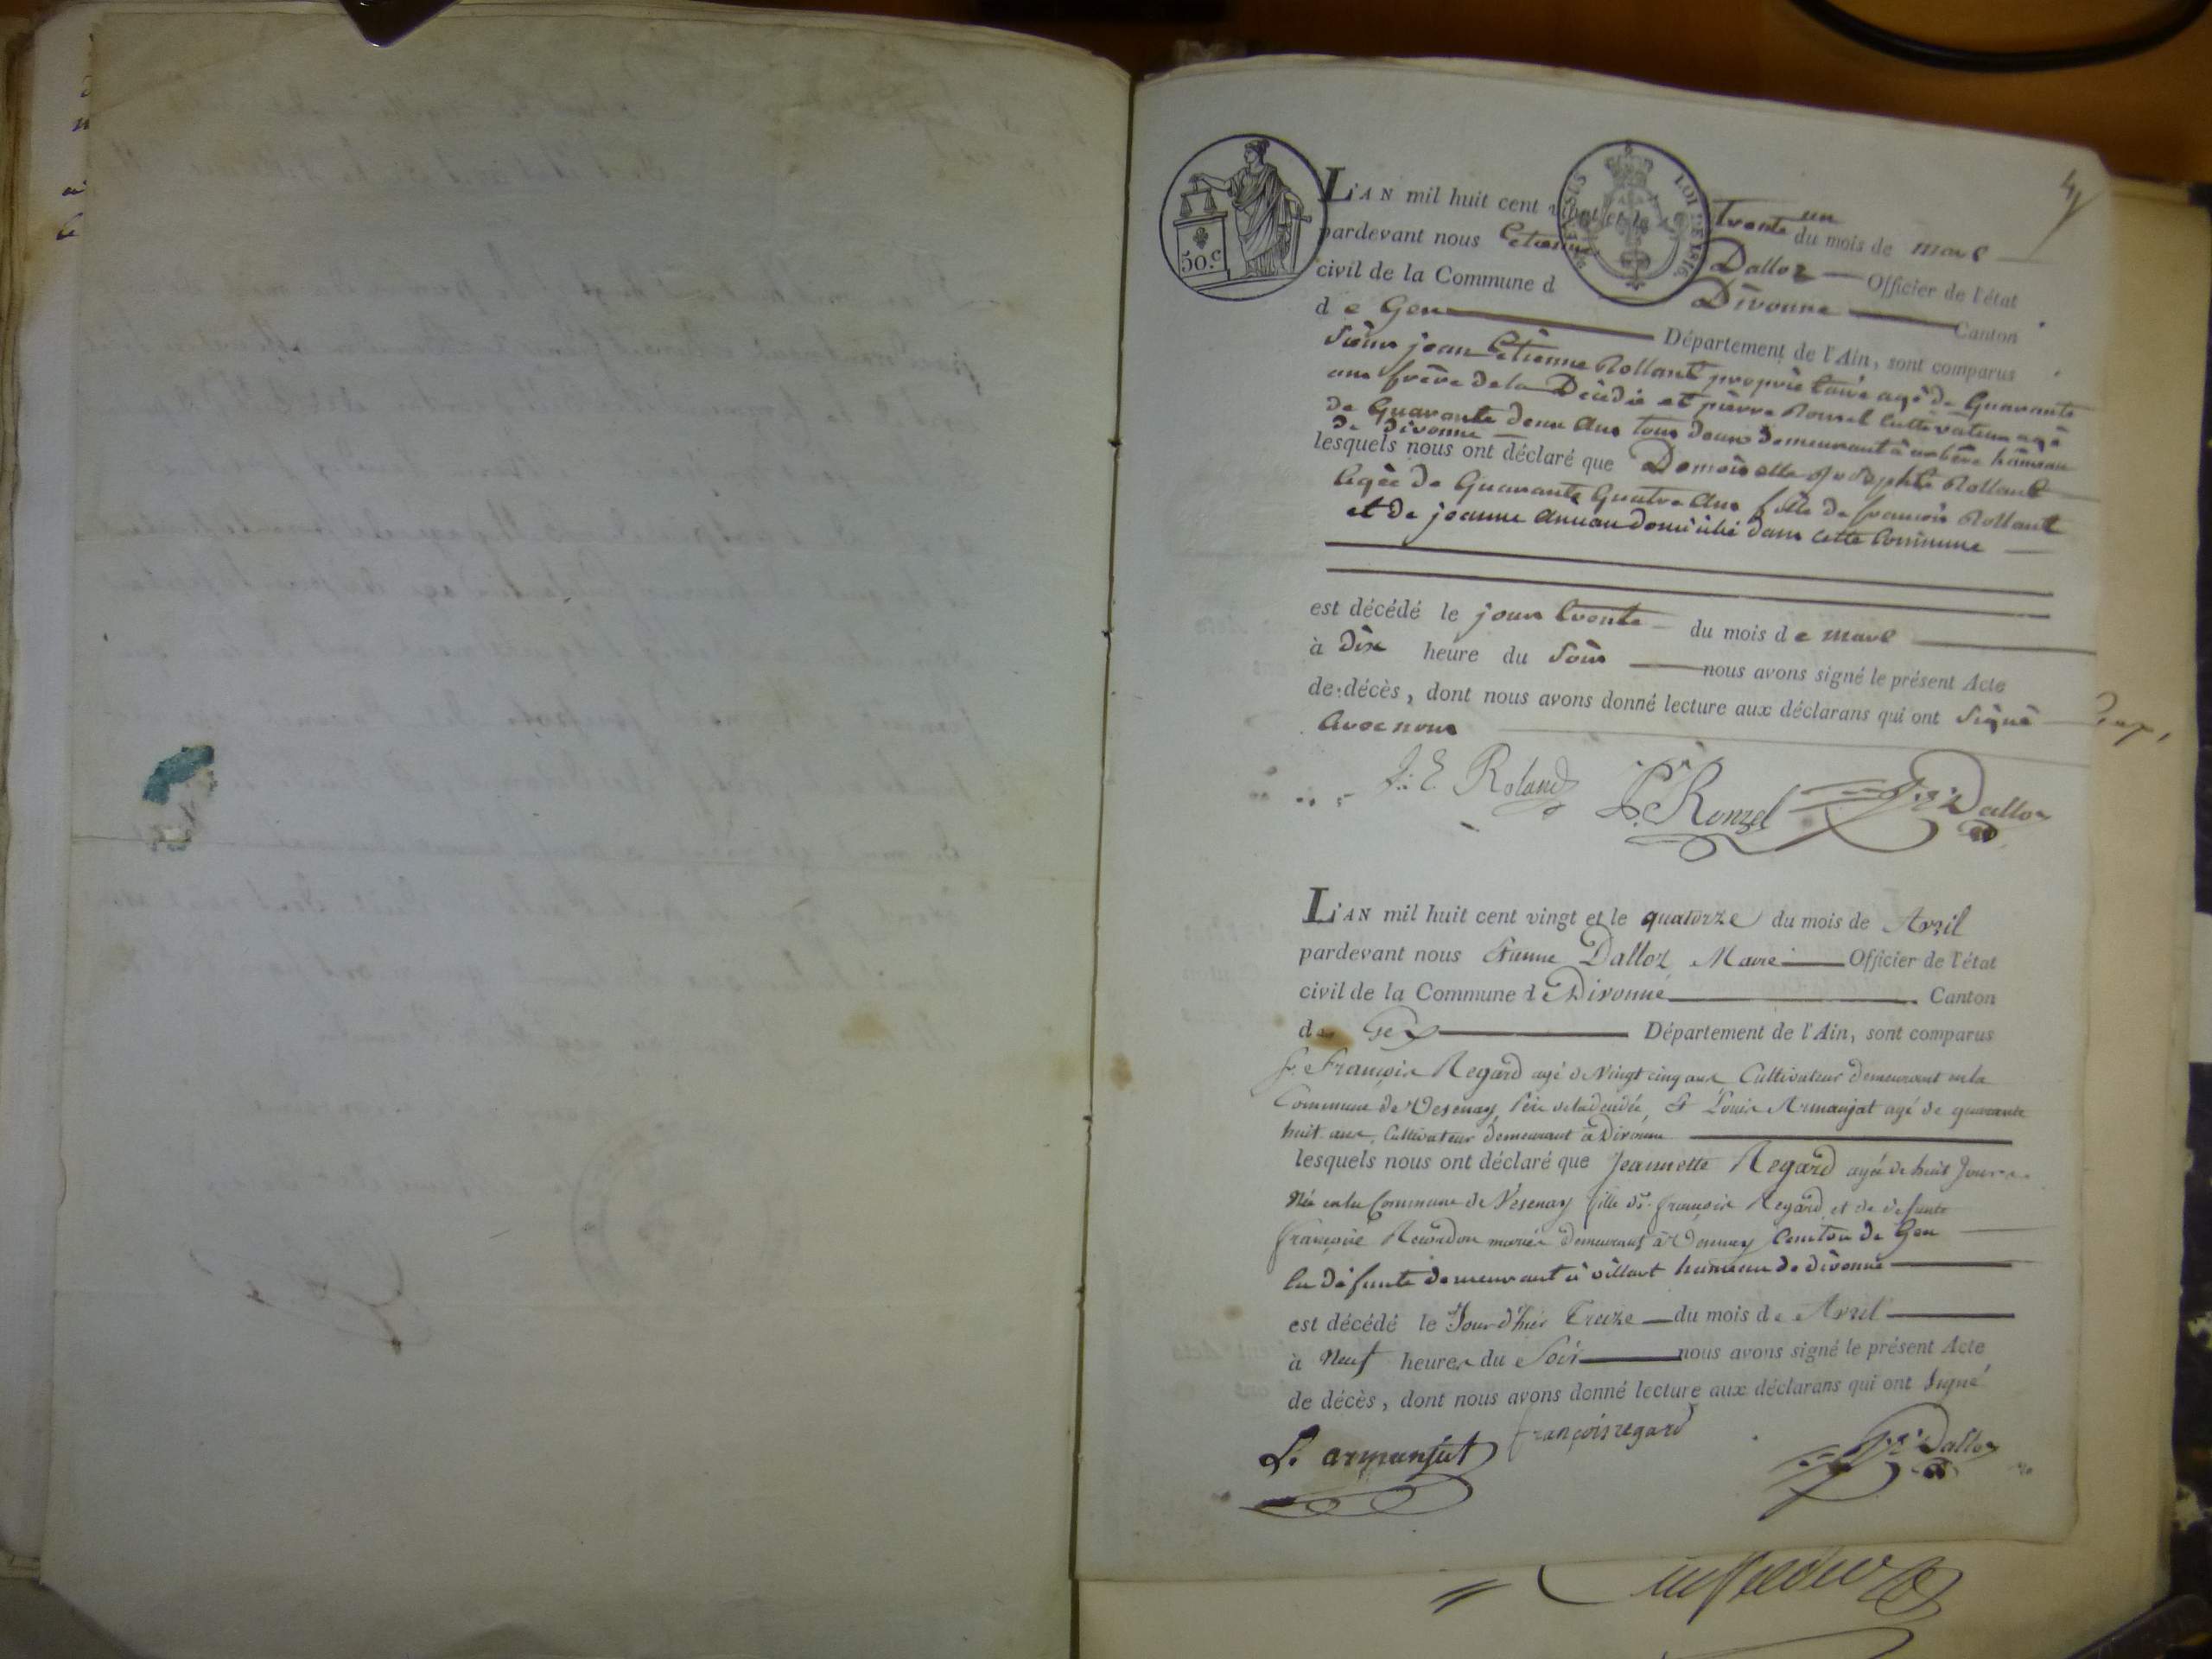 4
50.c
TIMBRE SUS LOI DE 1816.
L'AN mil huit cent vingt et le trente un du mois de mars
pardevant nous Etienne Dalloz Officier de l'état
civil de la Commune d Divonne Canton
d e Gex Département de l'Ain, sont comparus
Sieur jean Etienne Rolland propriètaire agé de Quarante
ans frère de la Dècedée et pierre Rouzel Cultivateur agé
de Quarante deux Ans tous deux demeurant à arbère hâmeau
de divonne
lesquels nous ont déclaré que Demoiselle Rolland
Agée de Quarante Quatre Ans fille de francois Rolland
et de jeanne domicilié dans cette Commune
est décédé le jour trente du mois d e mars
à dix heure du Soir nous avons signé le présent Acte
de décès, dont nous avons donné lecture aux déclarans qui ont Signè
Avec nous
J: E. Roland P. Ronzel Dalloz
L'AN mil huit cent vingt et le quatorze du mois de Avril
pardevant nous Etienne Dalloz Maire Officier de l'état
civil de la Commune de Divonne Canton
de Gex Département de l'Ain, sont comparus
Sr. François Regard agé de Vingt cinq ans Cultivateur demeurant en la
Commune de Vesenay, Père de la décédée, & Louis Armanjat agé de quarante
huit ans, Cultivateur demeurant à Divonne
lesquels nous ont déclaré que Jeannette Regard agée de huit Jours
Née en la Commune de Vesenay fille de Sr. françois Regard et de défunte
françoise mariés demeurant à Vesenay Canton de Gex
la défunte demeurant à villart hameau de divonne
est décédé le Jour d'hier Treize du mois de Avril
à Neuf heures du Soir nous avons signé le présent Acte
de décès, dont nous avons donné lecture aux déclarans qui ont Signé
L. armanjat françois regard Dalloz